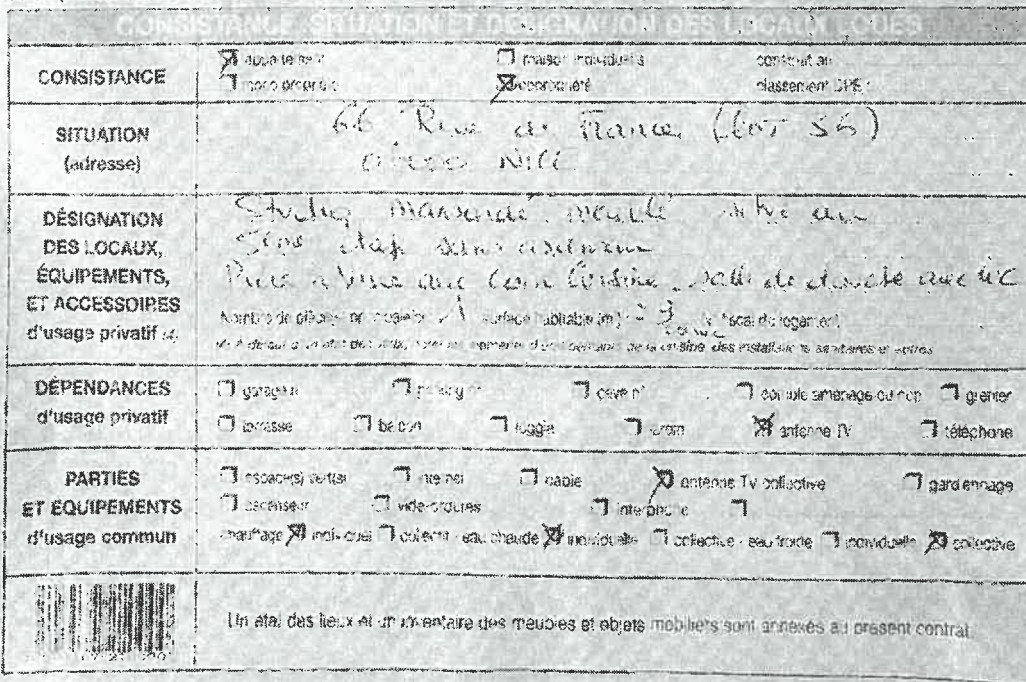 CONSISTANCE, SITUATION ET DESIGNATION DES LOCAUX LOUES
CONSISTANCE
appartement maison individuelle construit en
mono propriété copropriété classement DPE :
SITUATION
(adresse)
66 Rue de France (lot 56)
06000 NICE
DÉSIGNATION
DES LOCAUX,
ÉQUIPEMENTS,
ET ACCESSOIRES
d'usage privatif
Studio mansardé meublé situé au
5ème étage sans ascenseur
Pièce à vivre avec coin cuisine, salle de douche avec WC
Nombre de pièces principales 1 surface habitable (m²) fiscal du logement
de la cuisine, des installations sanitaires et autres
DÉPENDANCES
d'usage privatif
garage n° parking n° cave n° comble aménagé ou non grenier
terrasse balcon loggia jardin antenne TV téléphone
PARTIES
ET ÉQUIPEMENTS
d'usage commun
espace(s) vert(s) internet cable antenne TV collective gardiennage
ascenseur vide-ordures interphone
chauffage individuel collectif - eau chaude individuelle collective - eau froide individuelle collective
Un état des lieux et un inventaire des meubles et objets mobiliers sont annexés au présent contrat.